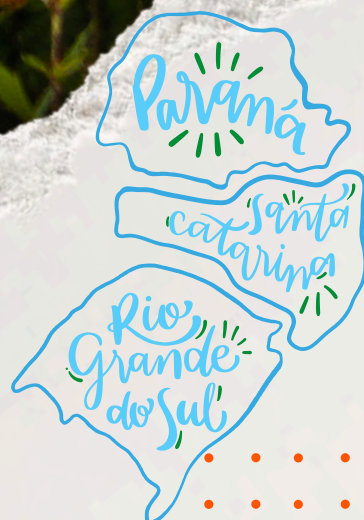 Paraná
Santa
catarina
Rio
Grande
do Sul